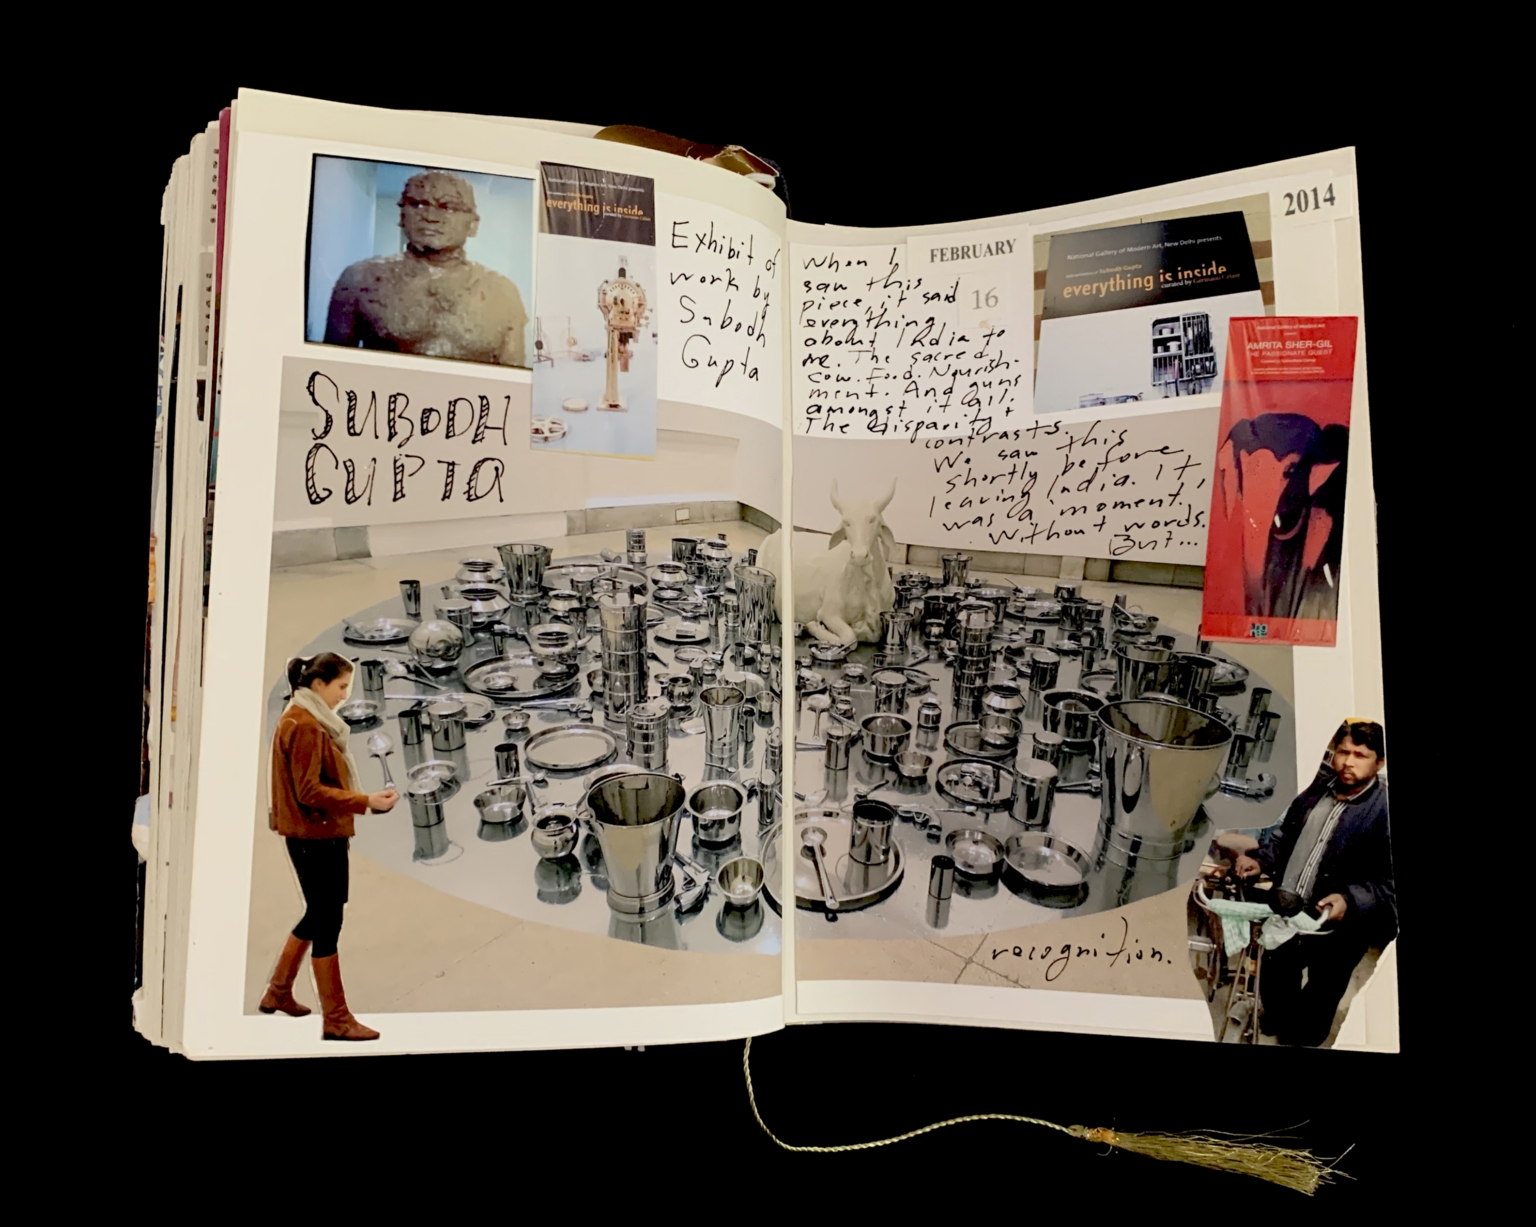 National Gallery of Modern Art, New Delhi presents
everything is inside
Exhibit of
work by
Subodh
Gupta
SUBODH
GUPTA
When I
saw this
piece, it said
everything
about India to
me. The sacred
cow. Food. Nourish-
ment. And guns
amongst it all.
The disparity +
contrasts.
We saw this
shortly before
leaving India. It
was a moment.
Without words.
But...
recognition.
FEBRUARY
16
2014
National Gallery of Modern Art, New Delhi presents
Subodh Gupta
everything is inside
curated by Germano
National Gallery of Modern Art
AMRITA SHER-GIL
THE PASSIONATE QUEST